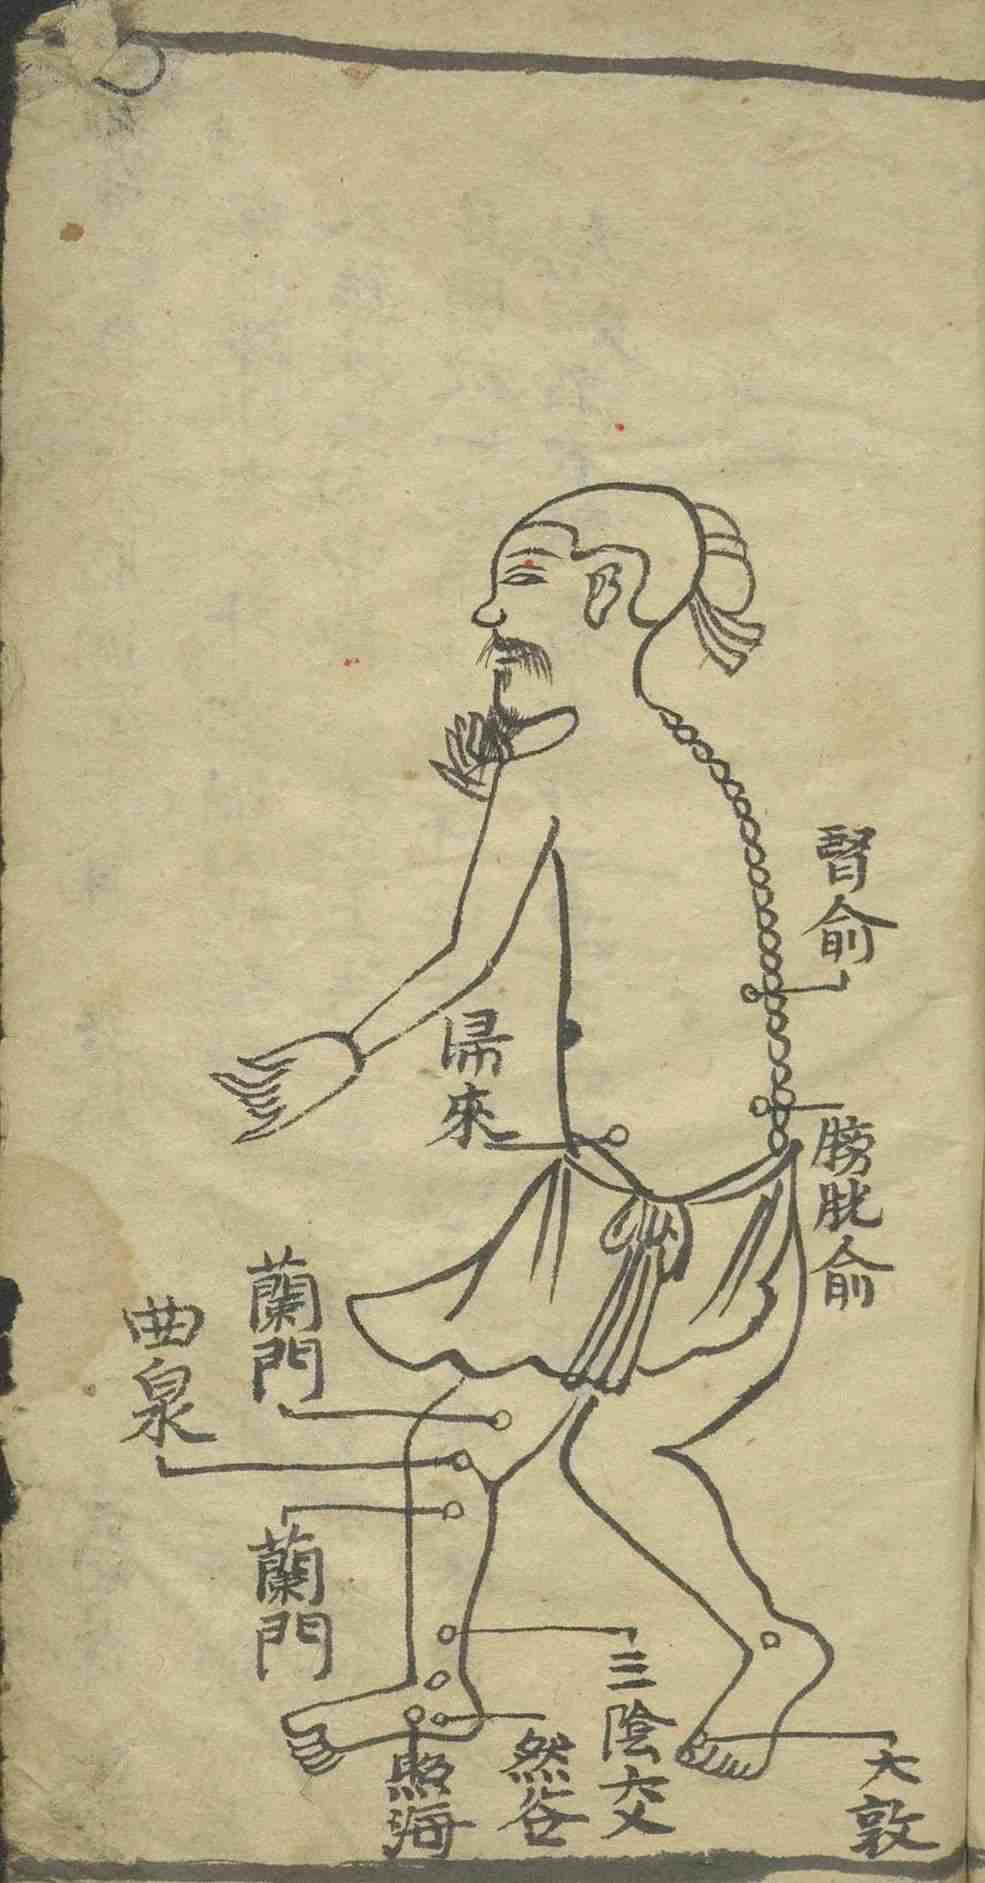 腎俞
膀胱俞
歸來
蘭門
曲泉
蘭門
三陰交
大敦
然谷
照海